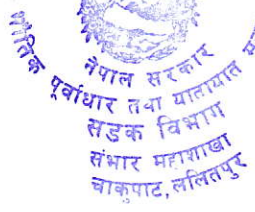 नेपाल सरकार
भौतिक पूर्वाधार तथा यातायात
सडक विभाग
संभार महाशाखा
चाकुपाट, ललितपुर